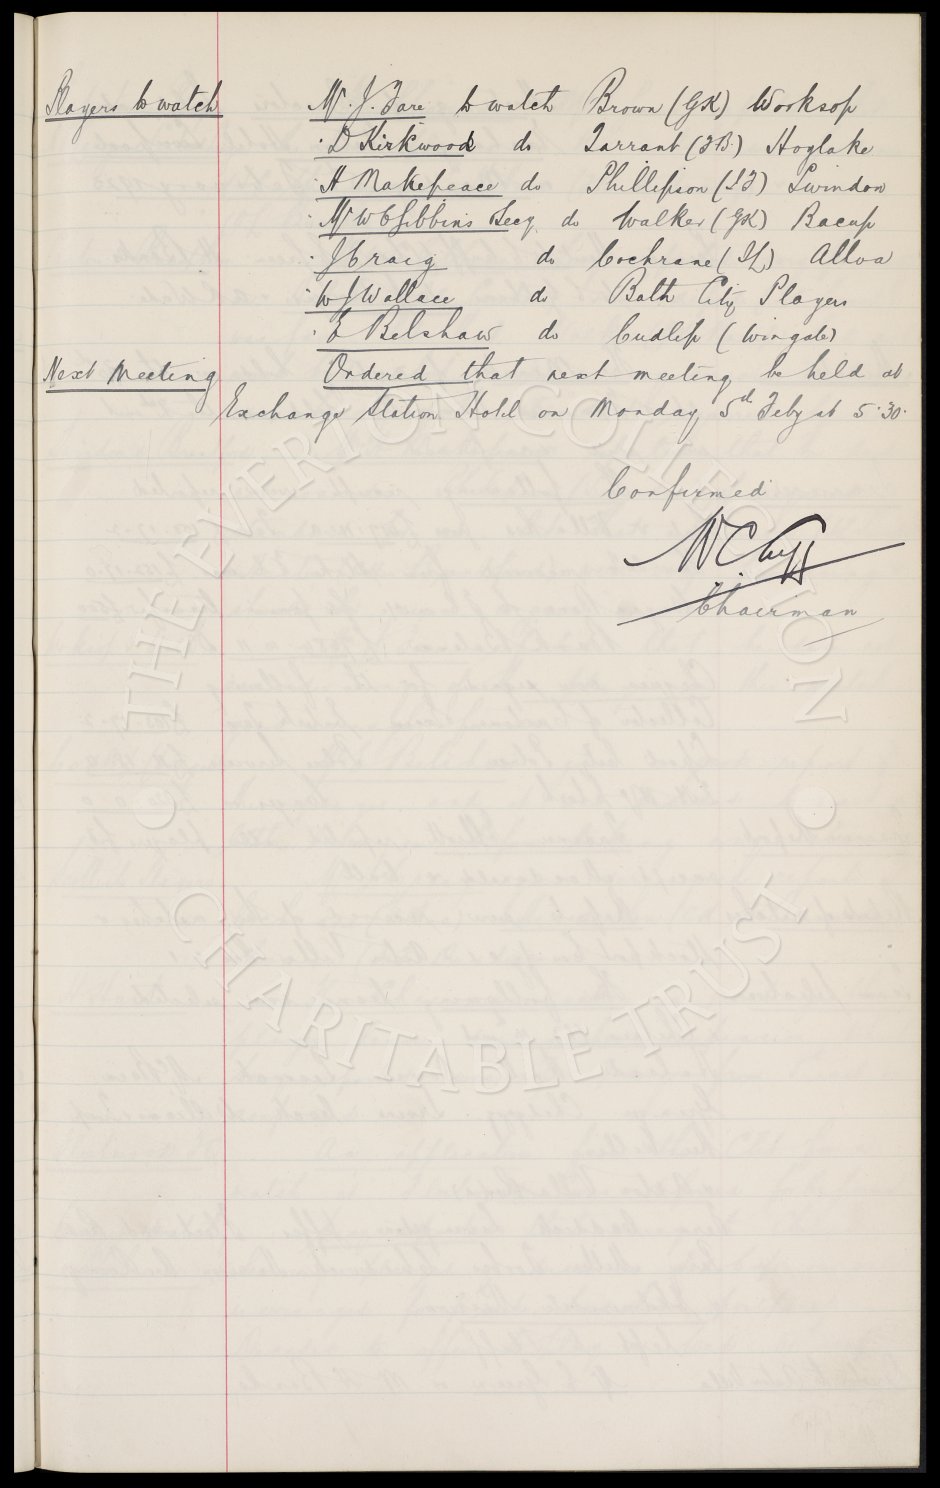 Players to watch Mr. J. Fare to watch Brown (GK) Worksop
" D Kirkwood do Tarrant (FB) Hoylake
" H Makepeace do Phillipson (IF) Swindon
" Mr W C Gibbins Secy do Walker (GK) Bacup
" J Craig do Cochrane (IL) Alloa
" W J Wallace do Bath City Players
" E Belshaw do Cudlip (Wingate)
Next Meeting Ordered that next meeting be held at
Exchange Station Hotel on Monday 5th Feby at 5.30.
Confirmed
W C Cuff
Chairman
THE EVERTON COLLECTION
CHARITABLE TRUST